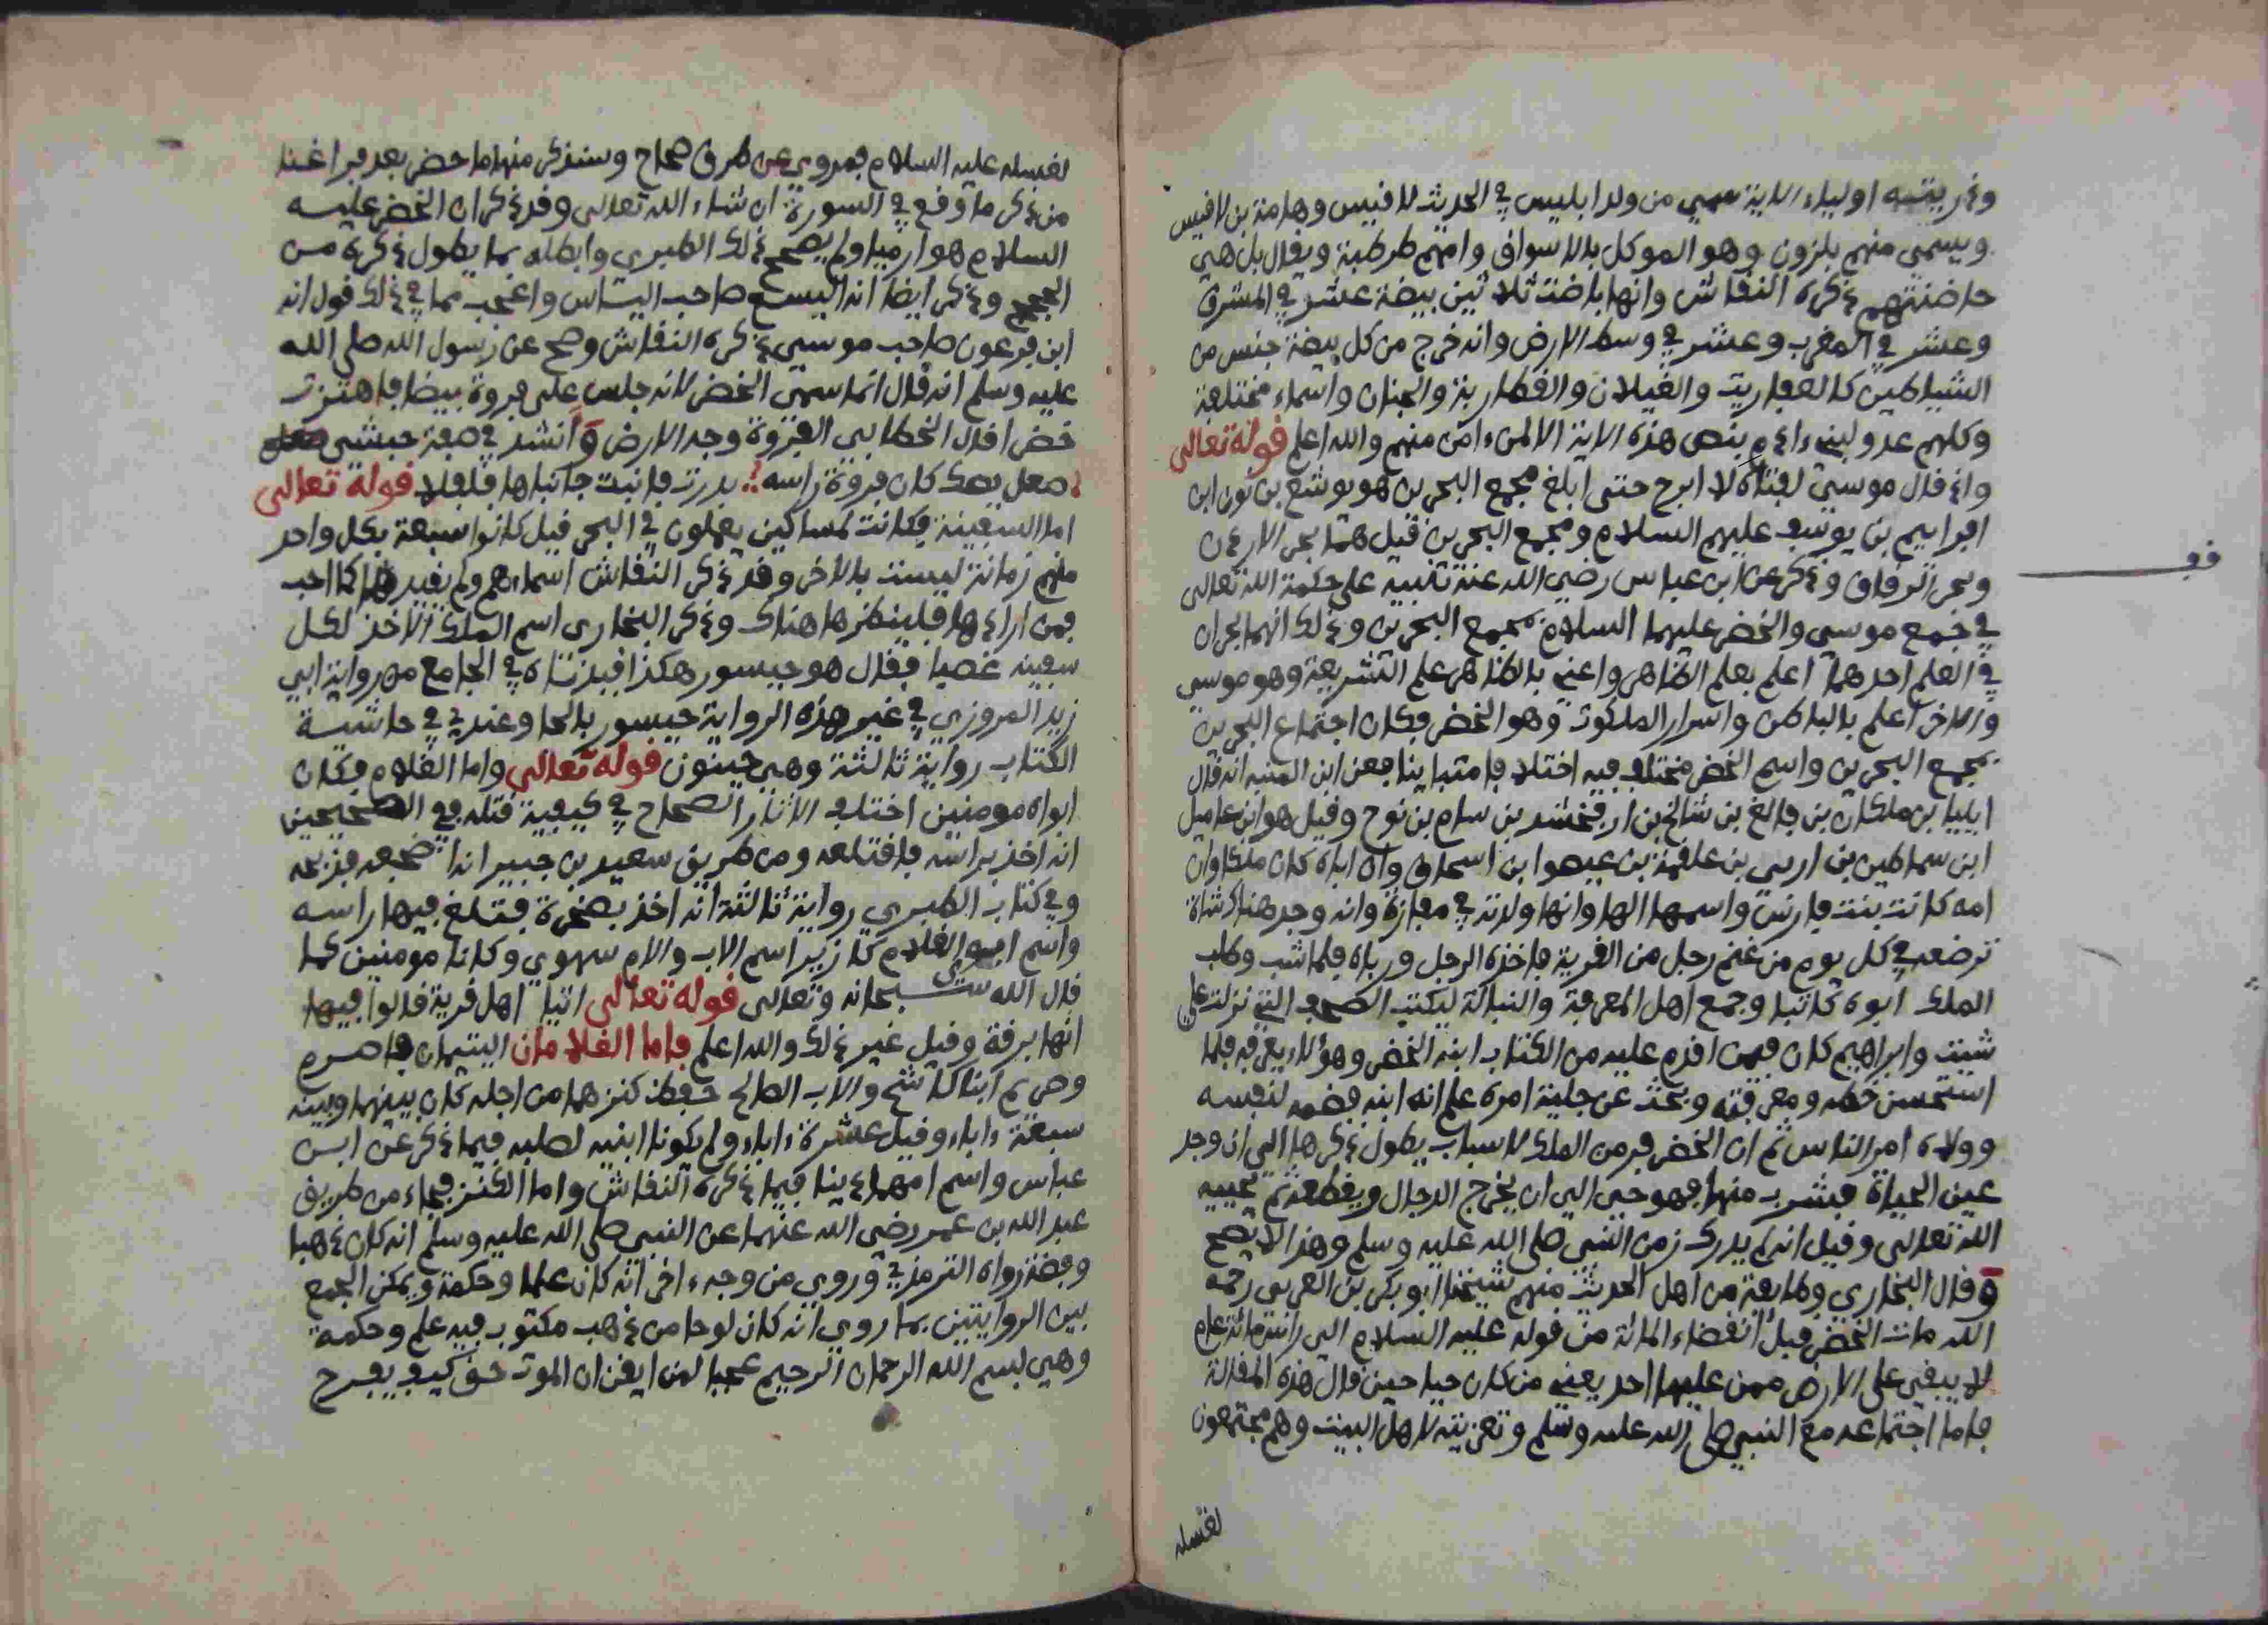 وذريته اولياء الاية سمي من ولد ابليس في الحديث لاقيس وهامة بن لاقيس
ويسمى منهم بلزون وهو الموكل بالاسواق وامهم طرطبة ويقال بل هي
حاضنتهم ذكره النقاش وانها باضت ثلاثين بيضة عشر في المشرق
وعشر في المغرب وعشر في وسط الارض وانه خرج من كل بيضة جنس من
الشياطين كالعفاريت والغيلان والقطاربة والجنان واسماء مختلفة
وكلهم عدو لبني ءادم بنص هذه الاية الا لمن ءامن منهم والله اعلم قوله تعالى
واذ قال موسى لفتاه لا ابرح حتى ابلغ مجمع البحرين هو يوشع بن نون ابن
افراييم بن يوسف عليهم السلام ومجمع البحرين قيل هما بحر الاردن
وبحر الزقاق وذكر عن ابن عباس رضي الله عنه تنبيه على حكمة الله تعالى
في جمع موسى والخضر عليهما السلام بمجمع البحرين وذلك انهما بحران
في العلم احدهما اعلم بعلم الظاهر واعني بالظاهر علم الشريعة وهو موسى
والاخر اعلم بالباطن واسرار الملكوت وهو الخضر فكان اجتماع البحرين
بمجمع البحرين واسم الخضر مختلف فيه اختلافا متباينا فعن ابن المنبه انه قال
ايليا بن ملكان بن فالغ بن شالخ بن ارفخشد بن سام بن نوح وقيل هو ابن عاميل
ابن سماطين بن اربي بن علقمة بن عيصوا بن اسحاق وان اباه كان ملكا وان
امه كانت بنت فارس واسمها الها وانها ولدته في مفازة وانه وجد هنالك شاة
ترضعه في كل يوم من غنم رجل من القرية فاخذه الرجل ورباه فلما شب وطلب
الملك ابوه كاتبا وجمع اهل المعرفة والنبالة ليكتب الصحف التي نزلت على
شيث وابراهيم كان فيمن اقدم عليه من الكتاب ابنه الخضر وهو لا يعرفه فلما
استحسن خطه ومعرفته وبحث عن جلية امره علم انه ابنه فضمه لنفسه
وولاه امر الناس ثم ان الخضر فر من الملك لاسباب يطول ذكرها الى ان وجد
عين الحياة فشرب منها فهو حي الى ان يخرج الدجال ويقطعه ثم يحييه
الله تعالى وقيل انه لم يدرك زمن النبي صلى الله عليه وسلم وهذا لا يصح
وقال البخاري وطايفة من اهل الحديث منهم شيخنا ابو بكر بن العربي رحمه
الله مات الخضر قبل انقضاء المائة من قوله عليه السلام الى راس مائة عام
لا يبقى على الارض ممن عليها احد يعني من كان حيا حين قال هذه المقالة
فاما اجتماعه مع النبي صلى الله عليه وسلم وتعزيته لاهل البيت وهم مجتمعون
لغسله
قف
لغسله عليه السلام فمروي عن طرق صحاح وسنذكر منها ما حضر بعد فراغنا
من ذكر ما وقع في السورة ان شاء الله تعالى وقد ذكر ان الخضر عليه
السلام هو ارميا ولم يصحح ذلك الطبري وابطله بما يطول ذكره من
الحجج وذكر ايضا انه اليسع صاحب الياس واعجب مما في ذلك قول انه
ابن فرعون صاحب موسى ذكره النقاش وصح عن رسول الله صلى الله
عليه وسلم انه قال انما سمي الخضر لانه جلس على فروة بيضا فاهتزت
خضرا قال الخطابي الفروة وجه الارض وانشد في صفة حبشي
صعل بعد كان فروة راسه بدرت فانبت جانباها فلفلا قوله تعالى
اما السفينة فكانت لمساكين يعملون في البحر قيل كانوا سبعة بكل واحد
منهم زمانة ليست بالاخر وقد ذكر النقاش اسماءهم ولم نقيدها كما احب
فمن ارادها فلينظرها هناك وذكر البخاري اسم الملك الاخذ لكل
سفينة غصبا فقال هو جيسور هكذا قيدناه في الجامع من رواية ابي
زيد المروزي في غير هذه الرواية حيسور بالحا وعندي في حاشية
الكتاب رواية ثالثة وهي حينون قوله تعالى واما الغلام فكان
ابواه مومنين اختلف الاثار الصحاح في كيفية قتله ففي الصحيحين
انه اخذ براسه فاقتلعه ومن طريق سعيد بن جبير انه اضجعه فذبحه
وفي كتاب الطبري رواية ثالثة انه اخذ بصخرة فثلغ فيها راسه
واسم ابوي الغلام كازير اسم الاب والام سهوي وكانا مومنين كما
قال الله سبحانه وتعالى قوله تعالى اتيا اهل قرية قالوا فيها
انها برقة وقيل غير ذلك والله اعلم فاما الغلامان اليتيمان فاصرم
وصريم ابنا كاشح والاب الصالح حفظ كنزهما من اجله كان بينهما وبينه
سبعة ءاباء وقيل عشرة ءاباء ولم يكونا ابنيه لصلبه فيما ذكر عن ابن
عباس واسم امهما دينا فيما ذكره النقاش واما الكنز فجاء من طريق
عبد الله بن عمر رضي الله عنهما عن النبي صلى الله عليه وسلم انه كان ذهبا
وفضة رواه الترمذي وروي من وجه ءاخر انه كان علما وحكمة ويمكن الجمع
بين الروايتين بما روي انه كان لوحا من ذهب مكتوب فيه علم وحكمة
وهي بسم الله الرحمان الرحيم عجبا لمن ايقن ان الموت حق كيف يفرح